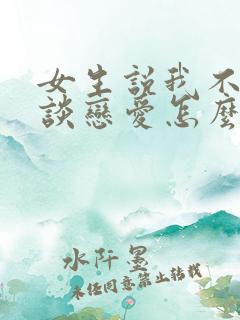 女生說我不
談戀愛怎麼
水阡墨
未經同意禁止轉載